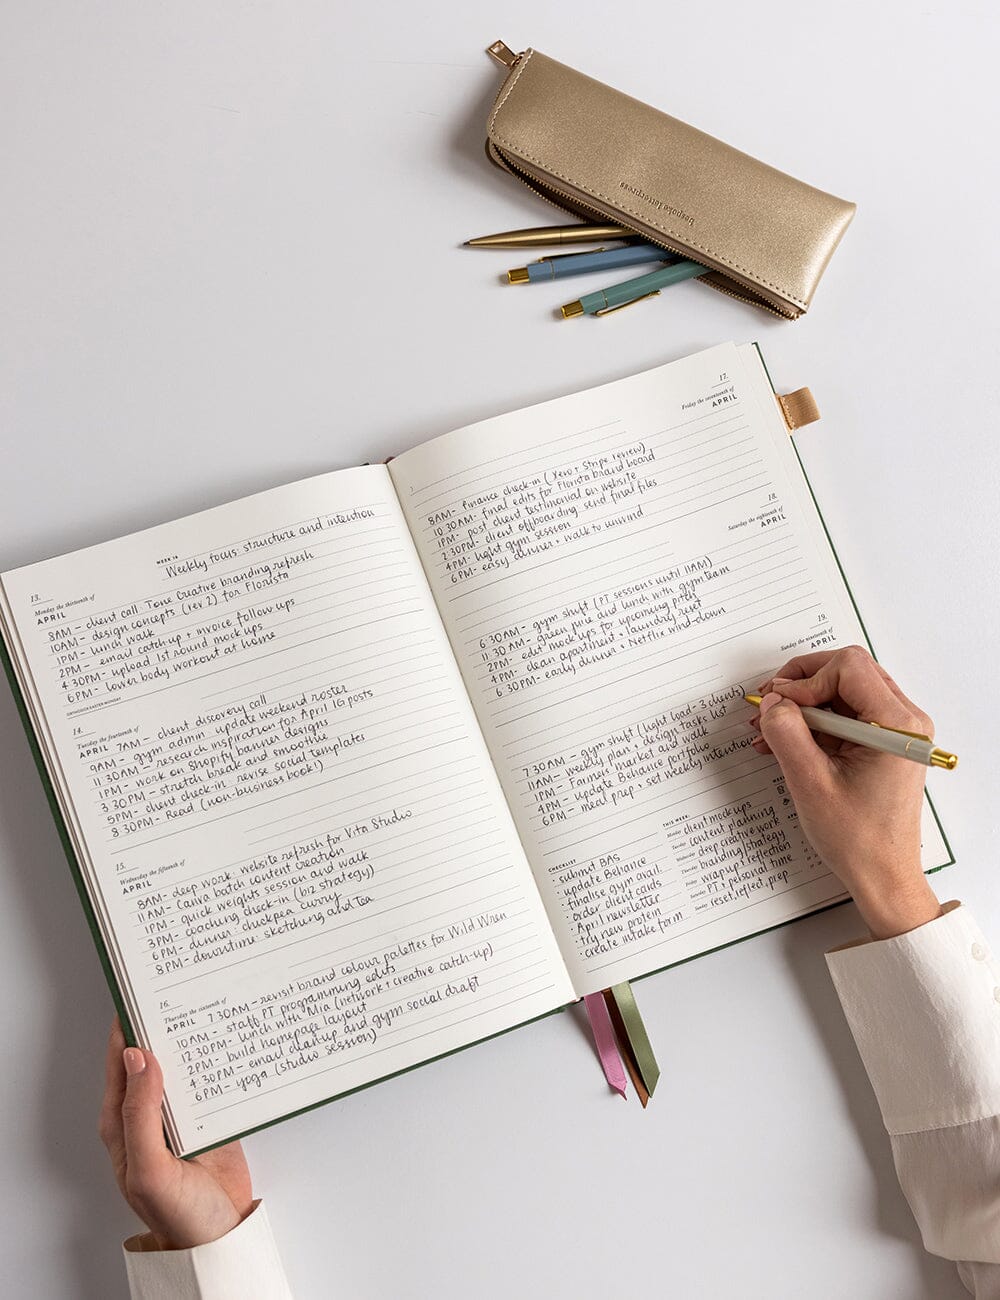 bespoke letterpress
WEEK 16
Weekly focus: structure and intention
13.
Monday the thirteenth of
APRIL
8AM - client call: Tone Creative branding refresh
10AM - design concepts (rev 2) for Florista
1PM - lunch walk
2PM - email catch-up + invoice follow ups
4:30PM - upload 1st round mock ups
6PM - lower body workout at home
ORTHODOX EASTER MONDAY
14.
Tuesday the fourteenth of
APRIL
7AM - client discovery call
9AM - gym admin: update weekend roster
11:30AM - research inspiration for April IG posts
1PM - work on Shopify banner designs
3:30PM - stretch break and smoothie
5PM - client check-in: revise social templates
8:30PM - Read (non-business book!)
15.
Wednesday the fifteenth of
APRIL
8AM - deep work: website refresh for Vita Studio
11AM - Canva batch content creation
1PM - quick weights session and walk
3PM - coaching check-in (biz strategy)
6PM - dinner: chickpea curry
8PM - downtime: sketching and tea
16.
Thursday the sixteenth of
APRIL
7:30AM - revisit brand colour palettes for Wild Wren
10AM - staff PT programming edits
12:30PM - lunch with Mia (network + creative catch-up)
2PM - build homepage layout
4:30PM - email clean-up and gym social draft
6PM - yoga (studio session)
17.
Friday the seventeenth of
APRIL
8AM - Finance check-in (Xero + Stripe review)
10:30AM - final edits for Florista brand board
1PM - post client testimonial on website
2:30PM - client offboarding: send final files
4PM - light gym session
6PM - easy dinner + walk to unwind
18.
Saturday the eighteenth of
APRIL
6:30AM - gym shift (PT sessions until 11AM)
11:30AM - green juice and lunch with gym team
2PM - edit mock ups for upcoming pitch
4PM - clean apartment + laundry reset
6:30PM - early dinner + Netflix wind-down
19.
Sunday the nineteenth of
APRIL
7:30AM - gym shift (light load - 3 clients)
11AM - weekly plan + design tasks list
1PM - Farmers market and walk
4PM - update Behance portfolio
6PM - meal prep + set weekly intention
CHECKLIST
· submit BAS
· update Behance
· finalise gym avail.
· order client cards
· April newsletter
· try new protein
· create intake form
THIS WEEK:
Monday client mock ups
Tuesday content planning
Wednesday deep creative work
Thursday branding/strategy
Friday wrap up + reflection
Saturday PT + personal time
Sunday reset, reflect, prep